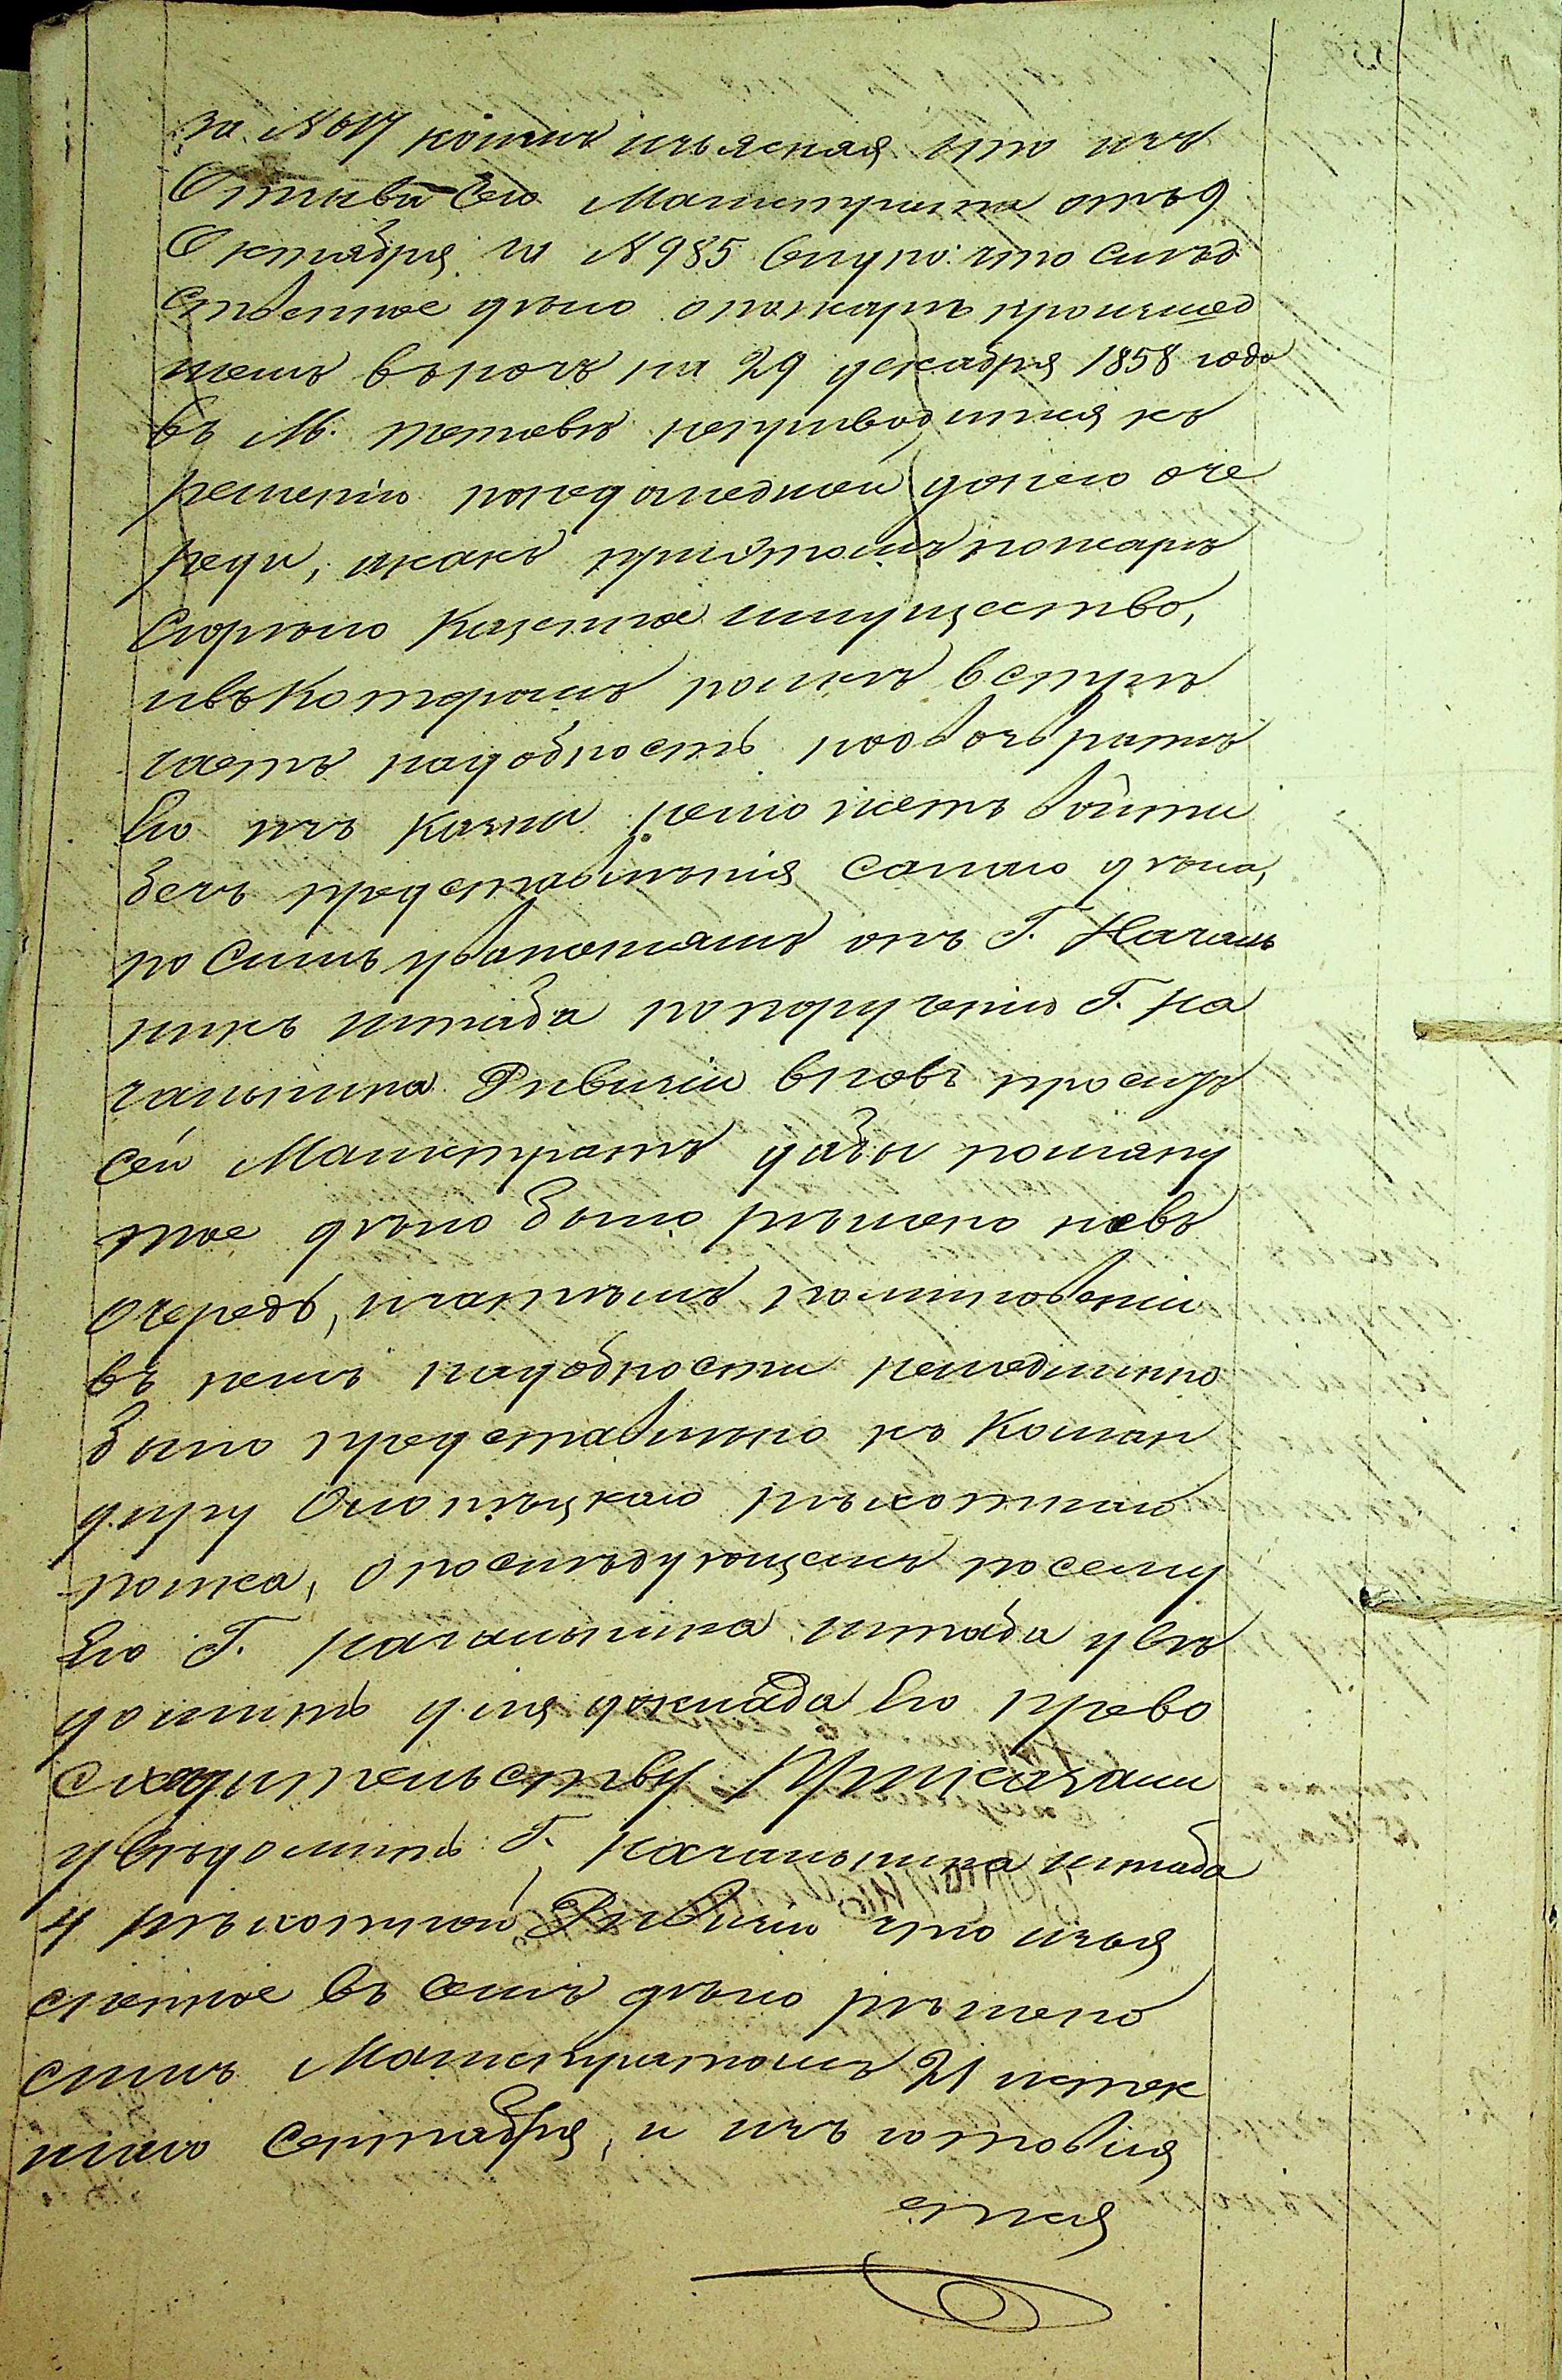 за № 617 коимъ изъясняя что изъ
Отзыва Сего Магистрата отъ 9
Октября за № 985 Спуро: что След
ственное дѣло о пожарѣ произшед
шемъ въ ночь на 29 декабря 1858 года
въ М. неприводится къ
решенію понедошедшей донего оче
реди, икакъ приэтомъ пожарѣ
сгорѣло Казенное имущество,
ивъкоторомъ полкъ встрѣ
чаетъ надобность новозвратъ
Его изъ казны неможетъ войти
безъ представленія самаго дѣла,
по Симъ уваженіямъ онъ Г. Началь
никъ штаба попорученію Г. На
чальника Дивизіи вновь проситъ
сей Магистратъ дабы помяну
тое дѣло было рѣшено невъ
очередь, изатѣмъ поминовеніи
въ немъ надобности немедленно
было представлено къ Коман
диру Олонѣцкаго пѣхотнаго
полка, опослѣдующемъ посему
Его Г. Начальника штаба увѣ
домить для доклада Его Прево
сходительству Приказали
увѣдомить Г. Начальника штаба
4 пѣхотной Дивизіи что изъя
сненное въ семъ дѣло рѣшено
симъ Магистратомъ 21 истек
шаго Сентября, и изъ готовля
ется